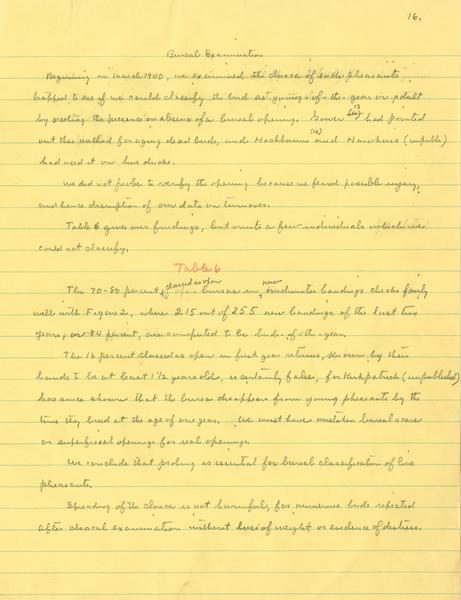 16.
Bursal Examination
Beginning in March 1940, we examined the cloaca of each pheasants
trapped to see if we could classify the bird as young-of-the-year or adult
by noting the presence or absence of a bursal opening. Gower 13 had pointed
out this method for aging dead birds, and Hochbaum (14) and Hawkins (unpubl.)
had used it on live ducks.
We did not probe to verify the opening because we feared possible injury,
and hence disruption of our data on turnover.
Table 6 gives our findings, but omits a few individuals which we
could not classify.
Table 6
The 70-80 percent classed as open bursae in new midwinter bandings checks fairly
well with Figure 2, where 215 out of 255 new bandings of the last two
years, or 84 percent, are computed to be birds-of-the-year.
The 16 percent classed as open in first year returns, known by their
bands to be at least 1 1/2 years old, is certainly false, for Kirkpatrick (unpublished)
has since shown that the bursa disappears from young pheasants by the
time they breed at the age of one year. We must have mistaken bursal scars
or superficial openings for real openings.
We conclude that probing is essential for bursal classification of live
pheasants.
Spreading of the cloaca is not harmful, for numerous birds repeated
after cloacal examination without loss of weight or evidence of distress.